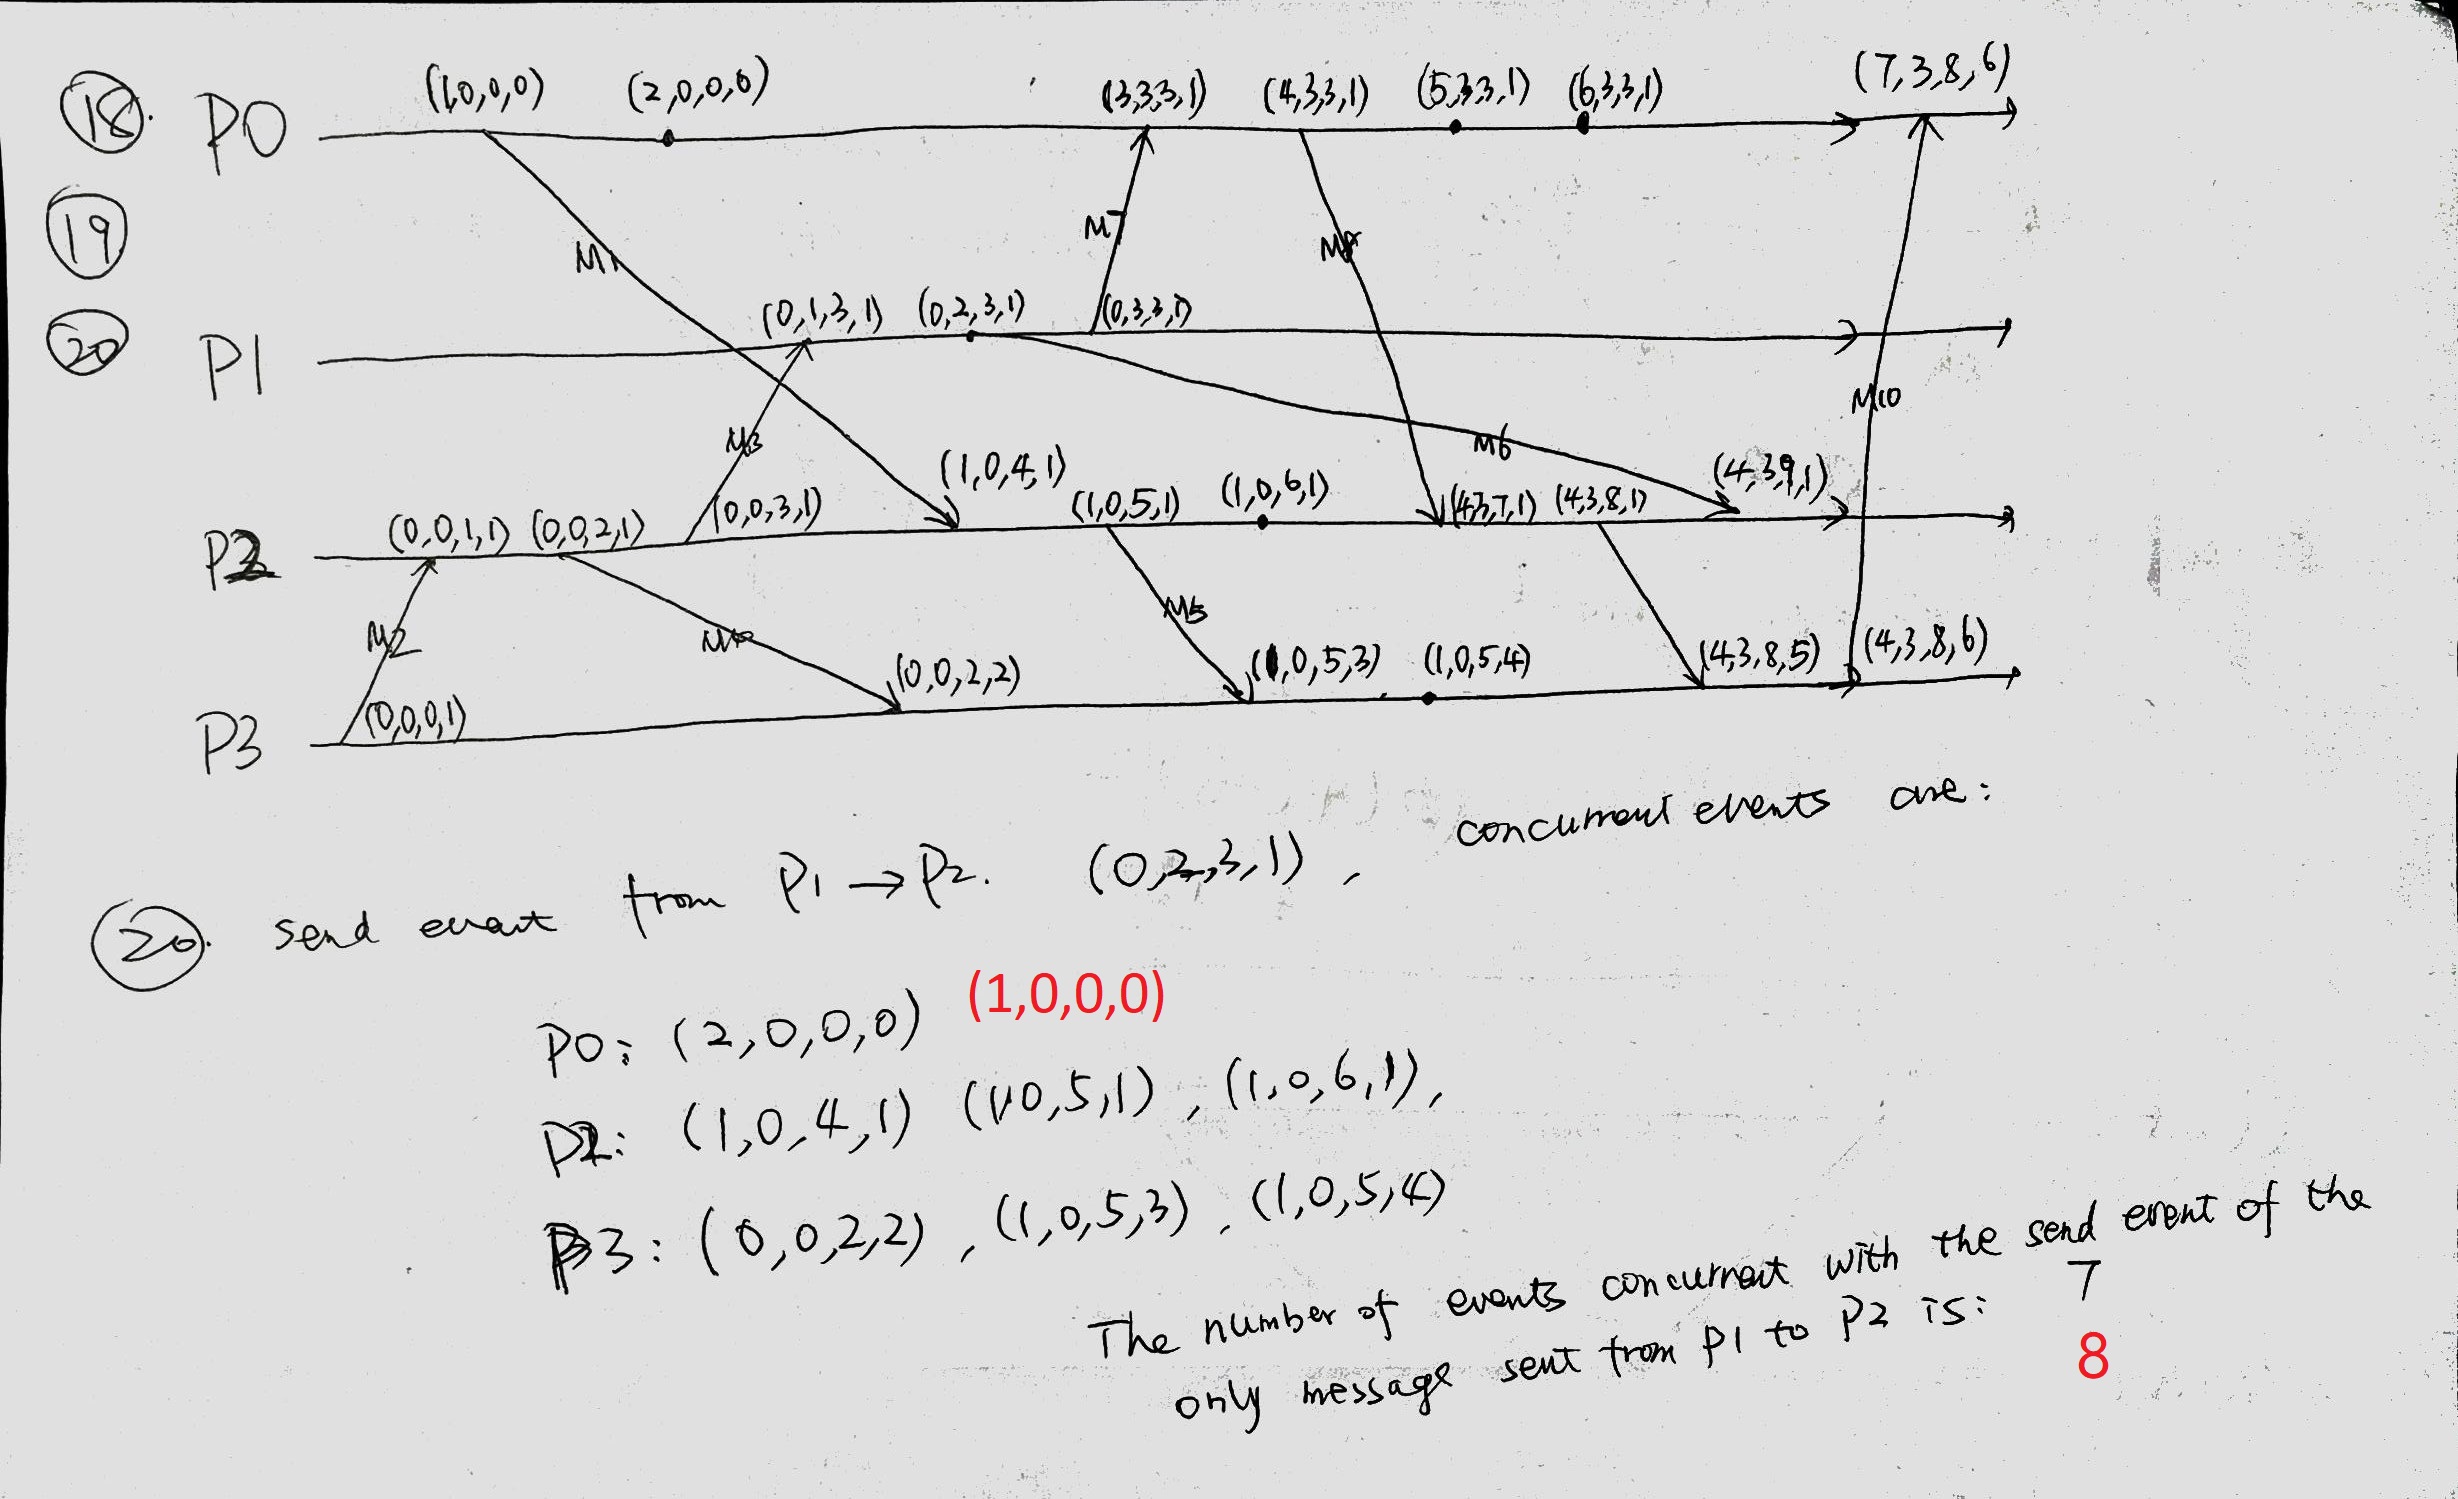 18. P0 (1,0,0,0) (2,0,0,0) (3,3,3,1) (4,3,3,1) (5,3,3,1) (6,3,3,1) (7,3,8,6)
19
M1 M7 M8
20 P1 (0,1,3,1) (0,2,3,1) (0,3,3,1)
M3 M6 M10
P2 (0,0,1,1) (0,0,2,1) (0,0,3,1) (1,0,4,1) (1,0,5,1) (1,0,6,1) (4,3,7,1) (4,3,8,1) (4,3,9,1)
M2 M4 M5
P3 (0,0,0,1) (0,0,2,2) (1,0,5,3) (1,0,5,4) (4,3,8,5) (4,3,8,6)
20. send event from P1 → P2. (0,2,3,1), concurrent events are:
P0: (2,0,0,0) (1,0,0,0)
P2: (1,0,4,1) (1,0,5,1), (1,0,6,1),
P3: (0,0,2,2), (1,0,5,3), (1,0,5,4)
The number of events concurrent with the send event of the
only message sent from P1 to P2 is: 7
8